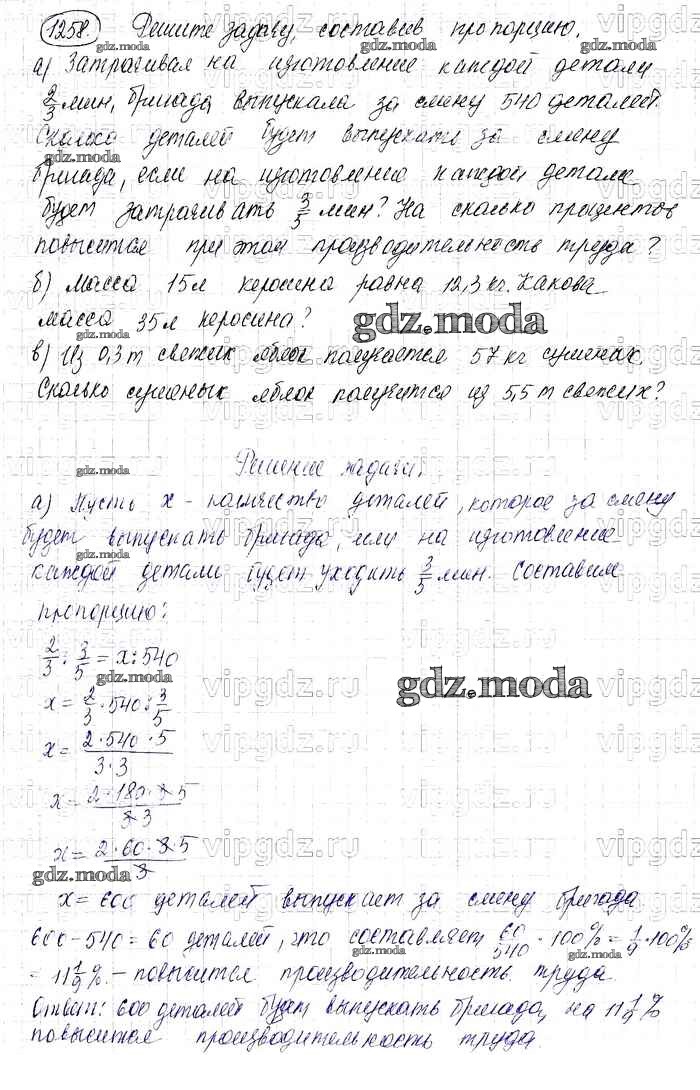 1258. Решите задачу, составив пропорцию.
gdz.moda
а) Затрачивая на изготовление каждой детали
2/3 мин, бригада выпускала за смену 540 деталей.
Сколько деталей будет выпускать за смену
gdz.moda
бригада, если на изготовление каждой детали
будет затрачивать 3/5 мин? На сколько процентов
повысится при этом производительность труда?
б) Масса 15 л керосина равна 12,3 кг. Какова
масса 35 л керосина?
gdz.moda
в) Из 0,3 т свежих яблок получается 57 кг сушеных.
Сколько сушеных яблок получится из 5,5 т свежих?
Решение задачи.
gdz.moda
а) Пусть x - количество деталей, которое за смену
будет выпускать бригада, если на изготовление
gdz.moda
каждой детали будет уходить 3/5 мин. Составим
пропорцию:
2/3 : 3/5 = x : 540
gdz.moda
x = 2/3 · 540 : 3/5
gdz.moda
x = 2·540·5 / 3·3
x = 2·180·3·5 / 3·3
x = 2·60·3·5 / 3
gdz.moda
x = 600 деталей выпускает за смену бригада
600-540=60 деталей, что составляет 60/540 · 100% = 1/9 · 100%
gdz.moda
= 11 1/9 % - повысится производительность труда.
Ответ: 600 деталей будет выпускать бригада, на 11 1/9 %
повысится производительность труда.
gdz.moda
vipgdz.ru